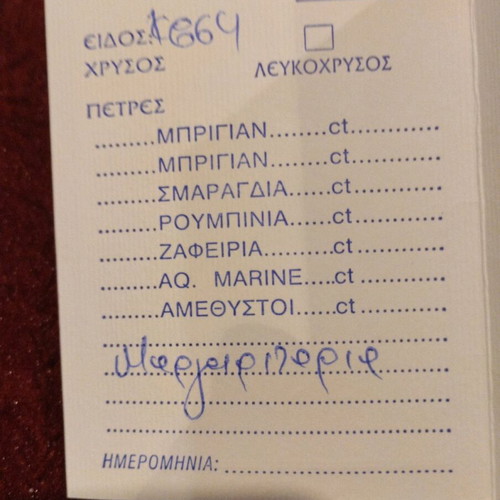 ΕΙΔΟΣ: K664
ΧΡΥΣΟΣ ΛΕΥΚΟΧΡΥΣΟΣ
ΠΕΤΡΕΣ
.........ΜΠΡΙΓΙΑΝ........ct............
.........ΜΠΡΙΓΙΑΝ........ct............
.........ΣΜΑΡΑΓΔΙΑ......ct............
.........ΡΟΥΜΠΙΝΙΑ......ct............
.........ΖΑΦΕΙΡΙΑ..........ct............
.........AQ. MARINE.....ct............
.........ΑΜΕΘΥΣΤΟΙ......ct............
Μαργαριταρια
ΗΜΕΡΟΜΗΝΙΑ: ..............................